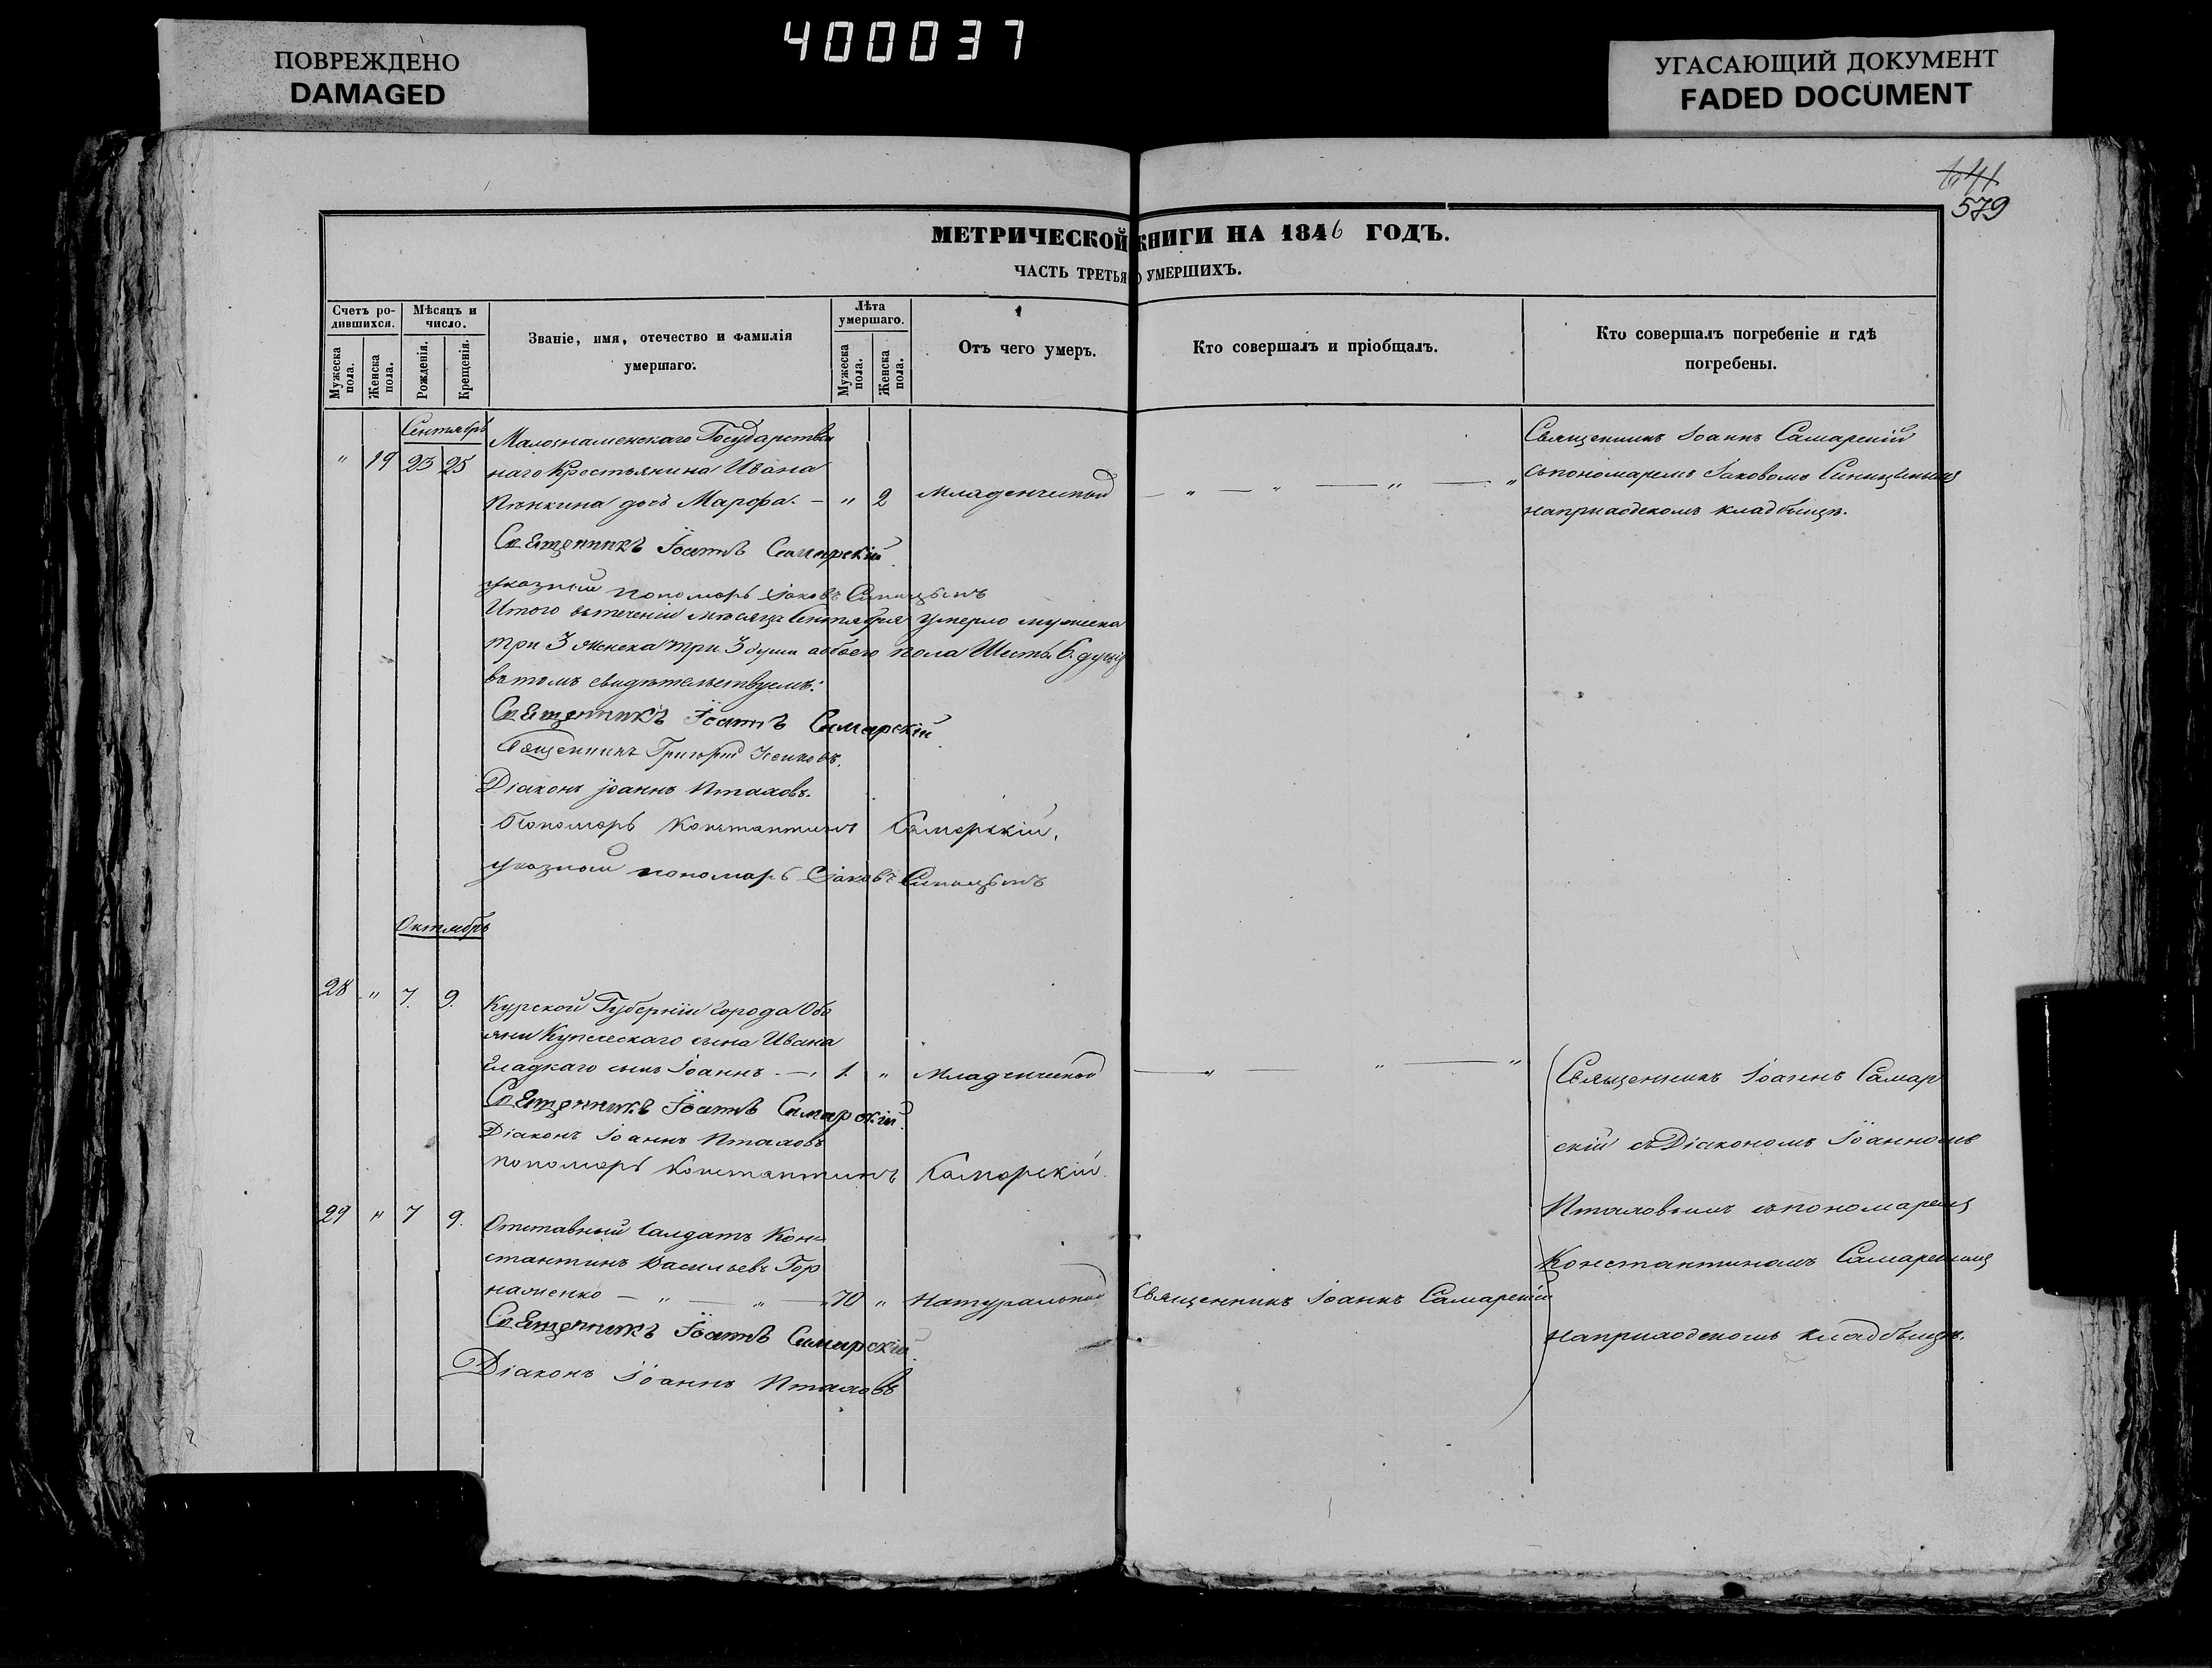 ПОВРЕЖДЕНО
DAMAGED
400037
УГАСАЮЩИЙ ДОКУМЕНТ
FADED DOCUMENT
641
579
МЕТРИЧЕСКОЙ КНИГИ НА 1846 ГОДЪ.
ЧАСТЬ ТРЕТЬЯ О УМЕРШИХЪ.
Счетъ родившихся.
Мужеска пола.
Женска пола.
Мѣсяцъ и число.
Рожденія.
Крещенія.
Званіе, имя, отечество и фамилія
умершаго.
Лѣта умершаго.
Мужеска пола.
Женска пола.
Отъ чего умеръ.
Кто совершалъ и пріобщалъ.
Кто совершалъ погребеніе и гдѣ
погребены.
Сентябрь
" 19 23 25
Малознаменскаго Государствен
наго Крестьянина Ивана
Пѣнкина дочь Марфа. — " 2 Младенческой — " — " — " — "
Священникъ Іоаннъ Самарскій
съ пономаремъ Іаковомъ Синицынымъ
на приходскомъ кладбищѣ.
Священникъ Іоаннъ Самарскій.
указный пономарь Іаковъ Синицынъ
Итого въ теченіи мѣсяца Сентября умерло мужеска
три 3 женска три 3 души обоего пола Шесть 6. душъ
въ томъ свидѣтельствуемъ:
Священникъ Іоаннъ Самарскій.
Священникъ Григорій
Діаконъ Іоаннъ Пталовъ.
Пономарь Константинъ Самарскій.
указный пономарь Іаковъ Синицынъ
Октябрь
28 " 7. 9.
Курской Губерніи Города Обо
яни Купеческаго сына Ивана
Гладкаго сынъ Іоаннъ. — 1. " Младенческой — " — " — "
Священникъ Іоаннъ Самарскій.
Діаконъ Іоаннъ Пталовъ
пономарь Константинъ Самарскій.
29 " 7 9.
Отставный Салдатъ Кон=
стантинъ Васильевъ Гор
— " — " — 70 " Натуральной Священникъ Іоаннъ Самарскій
Священникъ Іоаннъ Самарскій.
Діаконъ Іоаннъ Пталовъ
Священникъ Іоаннъ Самар
скій съ Діакономъ Іоанномъ
Пталовымъ съ пономаремъ
Константиномъ Самарскимъ
на приходскомъ кладбищѣ.